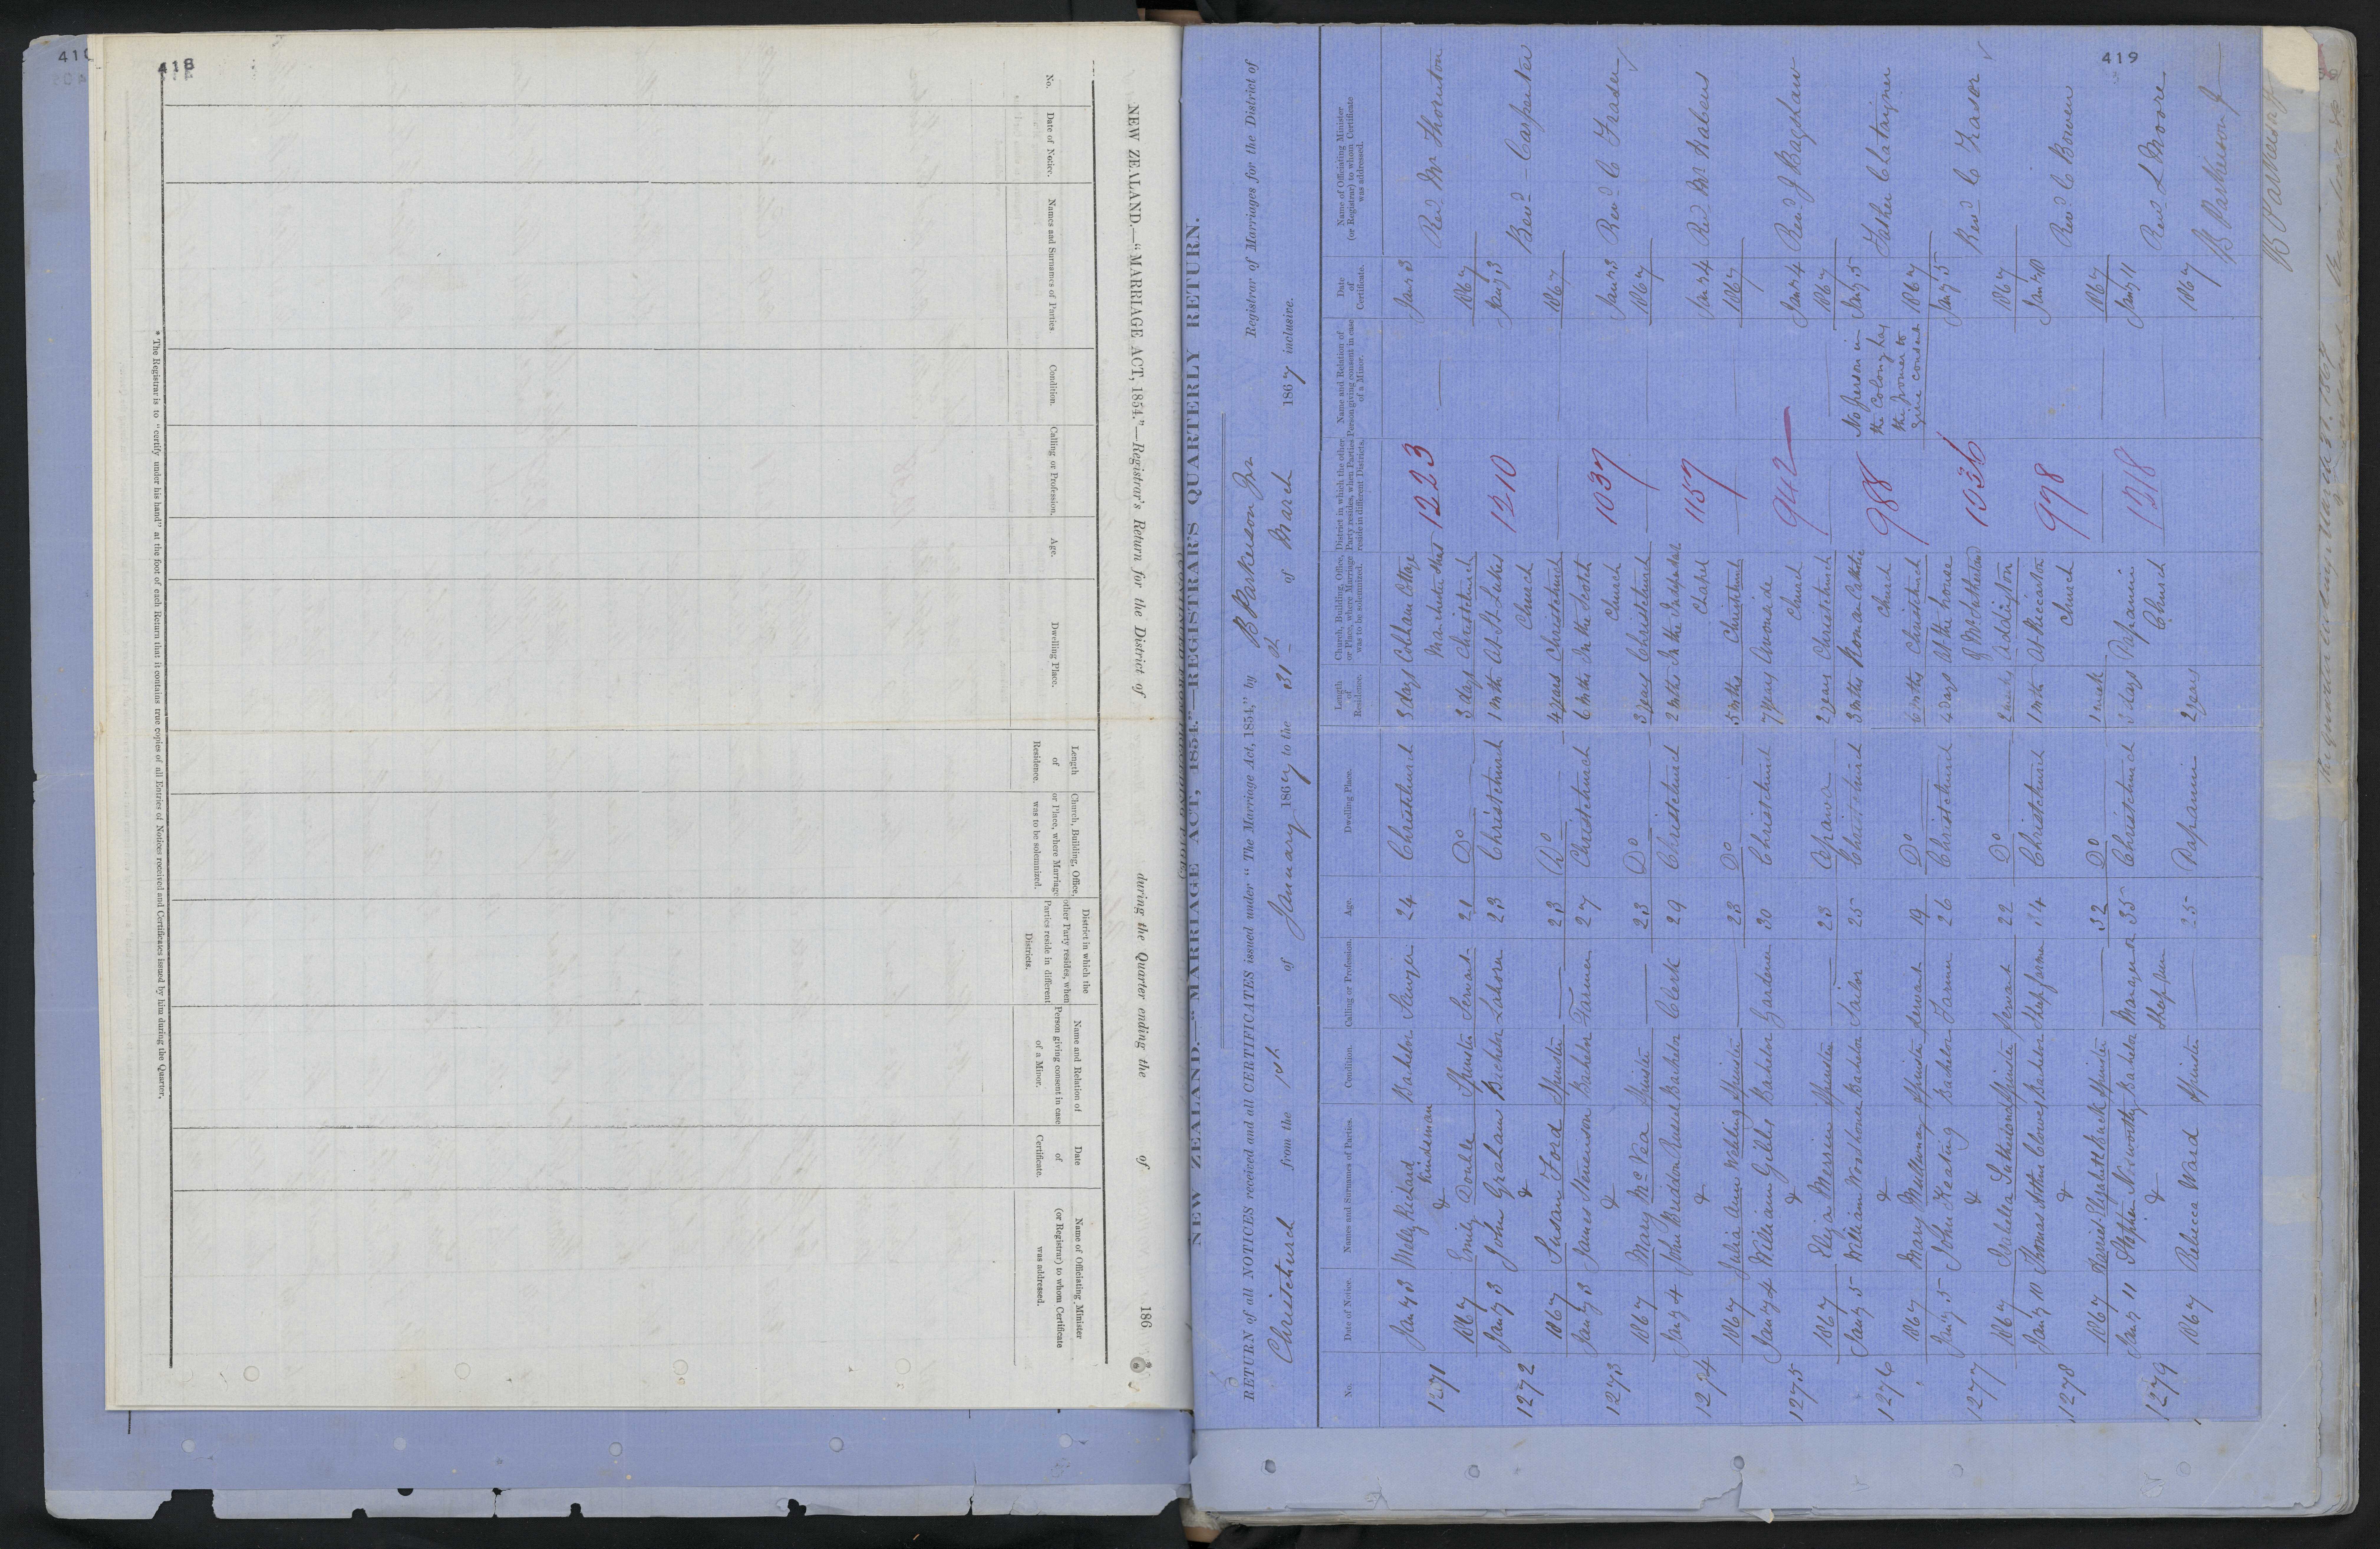 418
NEW ZEALAND.—"MARRIAGE ACT, 1854."—Registrar's Return for the District of during the Quarter ending the of 186
No. Date of Notice. Names and Surnames of Parties Condition. Calling or Profession. Age. Dwelling Place. Length of Residence. Church, Building, Office, or Place, where Marriage was to be solemnized. District in which the other Party resides, when Parties reside in different Districts. Name and Relation of Person giving consent in case of a Minor. Date of Certificate. Name of Officiating Minister (or Registrar) to whom Certificate was addressed.
* The Registrar is to "certify under his hand" at the foot of each Return that it contains true copies of all Entries of Notices received and Certificates issued by him during the Quarter.
419
NEW ZEALAND.—"MARRIAGE ACT, 1854."—REGISTRAR'S QUARTERLY RETURN.
RETURN of all NOTICES received and all CERTIFICATES issued under "The Marriage Act, 1854," by B Parkerson Jnr Registrar of Marriages for the District of
Christchurch from the 1st of January 1867 to the 31st of March 1867 inclusive.
No. Date of Notice. Names and Surnames of Parties. Condition. Calling or Profession. Age. Dwelling Place. Length of Residence. Church, Building, Office, or Place, where Marriage was to be solemnized. District in which the other Party resides, when Parties reside in different Districts. Name and Relation of Person giving consent in case of a Minor. Date of Certificate. Name of Officiating Minister (or Registrar) to whom Certificate was addressed.
Jany 3 Richard Bachelor Sawyer 24 Christchurch 3 days Cobham Cottage Jany 3
1271 & Kindeman Manchester Street 1223 Revd Mr Thornton
1867 Emily Double Spinster Servant 21 Do 3 days Christchurch 1867
Jany 3 John Graham Bachelor Laborer 23 Christchurch 1 mth At St Lukes Jany 3
1272 & Church 1210 Revd — Carpenter
1867 Susan Ford Spinster — 23 Do 4 years Christchurch 1867
Jany 3 James Stevenson Bachelor Farmer 27 Christchurch 6 mths In the Scotch Jany 3
1273 & Church 1037 Revd C Fraser
1867 Mary McVea Spinster — 23 Do 3 years Christchurch 1867
Jany 4 John Russell Bachelor Clerk 29 Christchurch 2 mths In the Jany 4
1274 & Chapel 1157 Revd Mr Habens
1867 Julia Ann Spinster 23 Do 5 mths Christchurch 1867
Jany 4 William Gibbs Bachelor Gardener 30 Christchurch 7 years Avonside Jany 4
1275 & Church 942 Revd J Bagshaw
1867 Eliza Merrin Spinster — 23 Opawa 2 years Christchurch 1867
Jany 5 William Woodhouse Bachelor Sailor 25 Christchurch 3 mths Roman Catholic No person in Jany 5
1276 & Church 988 the Colony has the power to give consent Father Chataigner
1867 Mary Mullowney Spinster Servant 19 Do 6 mths Christchurch 1867
Jany 5 John Keating Bachelor Farmer 26 Christchurch 4 days At the house Jany 5
1277 & 1036 Revd C Fraser
1867 Isabella Sutherland Spinster Servant 22 Do Addington 1867
Jany 10 Thomas Arthur Clowes Bachelor Sheepfarmer 34 Christchurch 1 mth At Riccarton Jany 10
1278 & Church 998 Revd C Bowen
1867 Harriet Elizabeth Spinster — 32 Do 1 mth 1867
Jany 11 Stephen Bachelor Manager 35 Christchurch 3 days Papanui Jany 11
1279 & Church 1218 Revd L Moore
1867 Rebecca Ward Spinster — 25 Papanui 2 years 1867
B Parkerson Jr